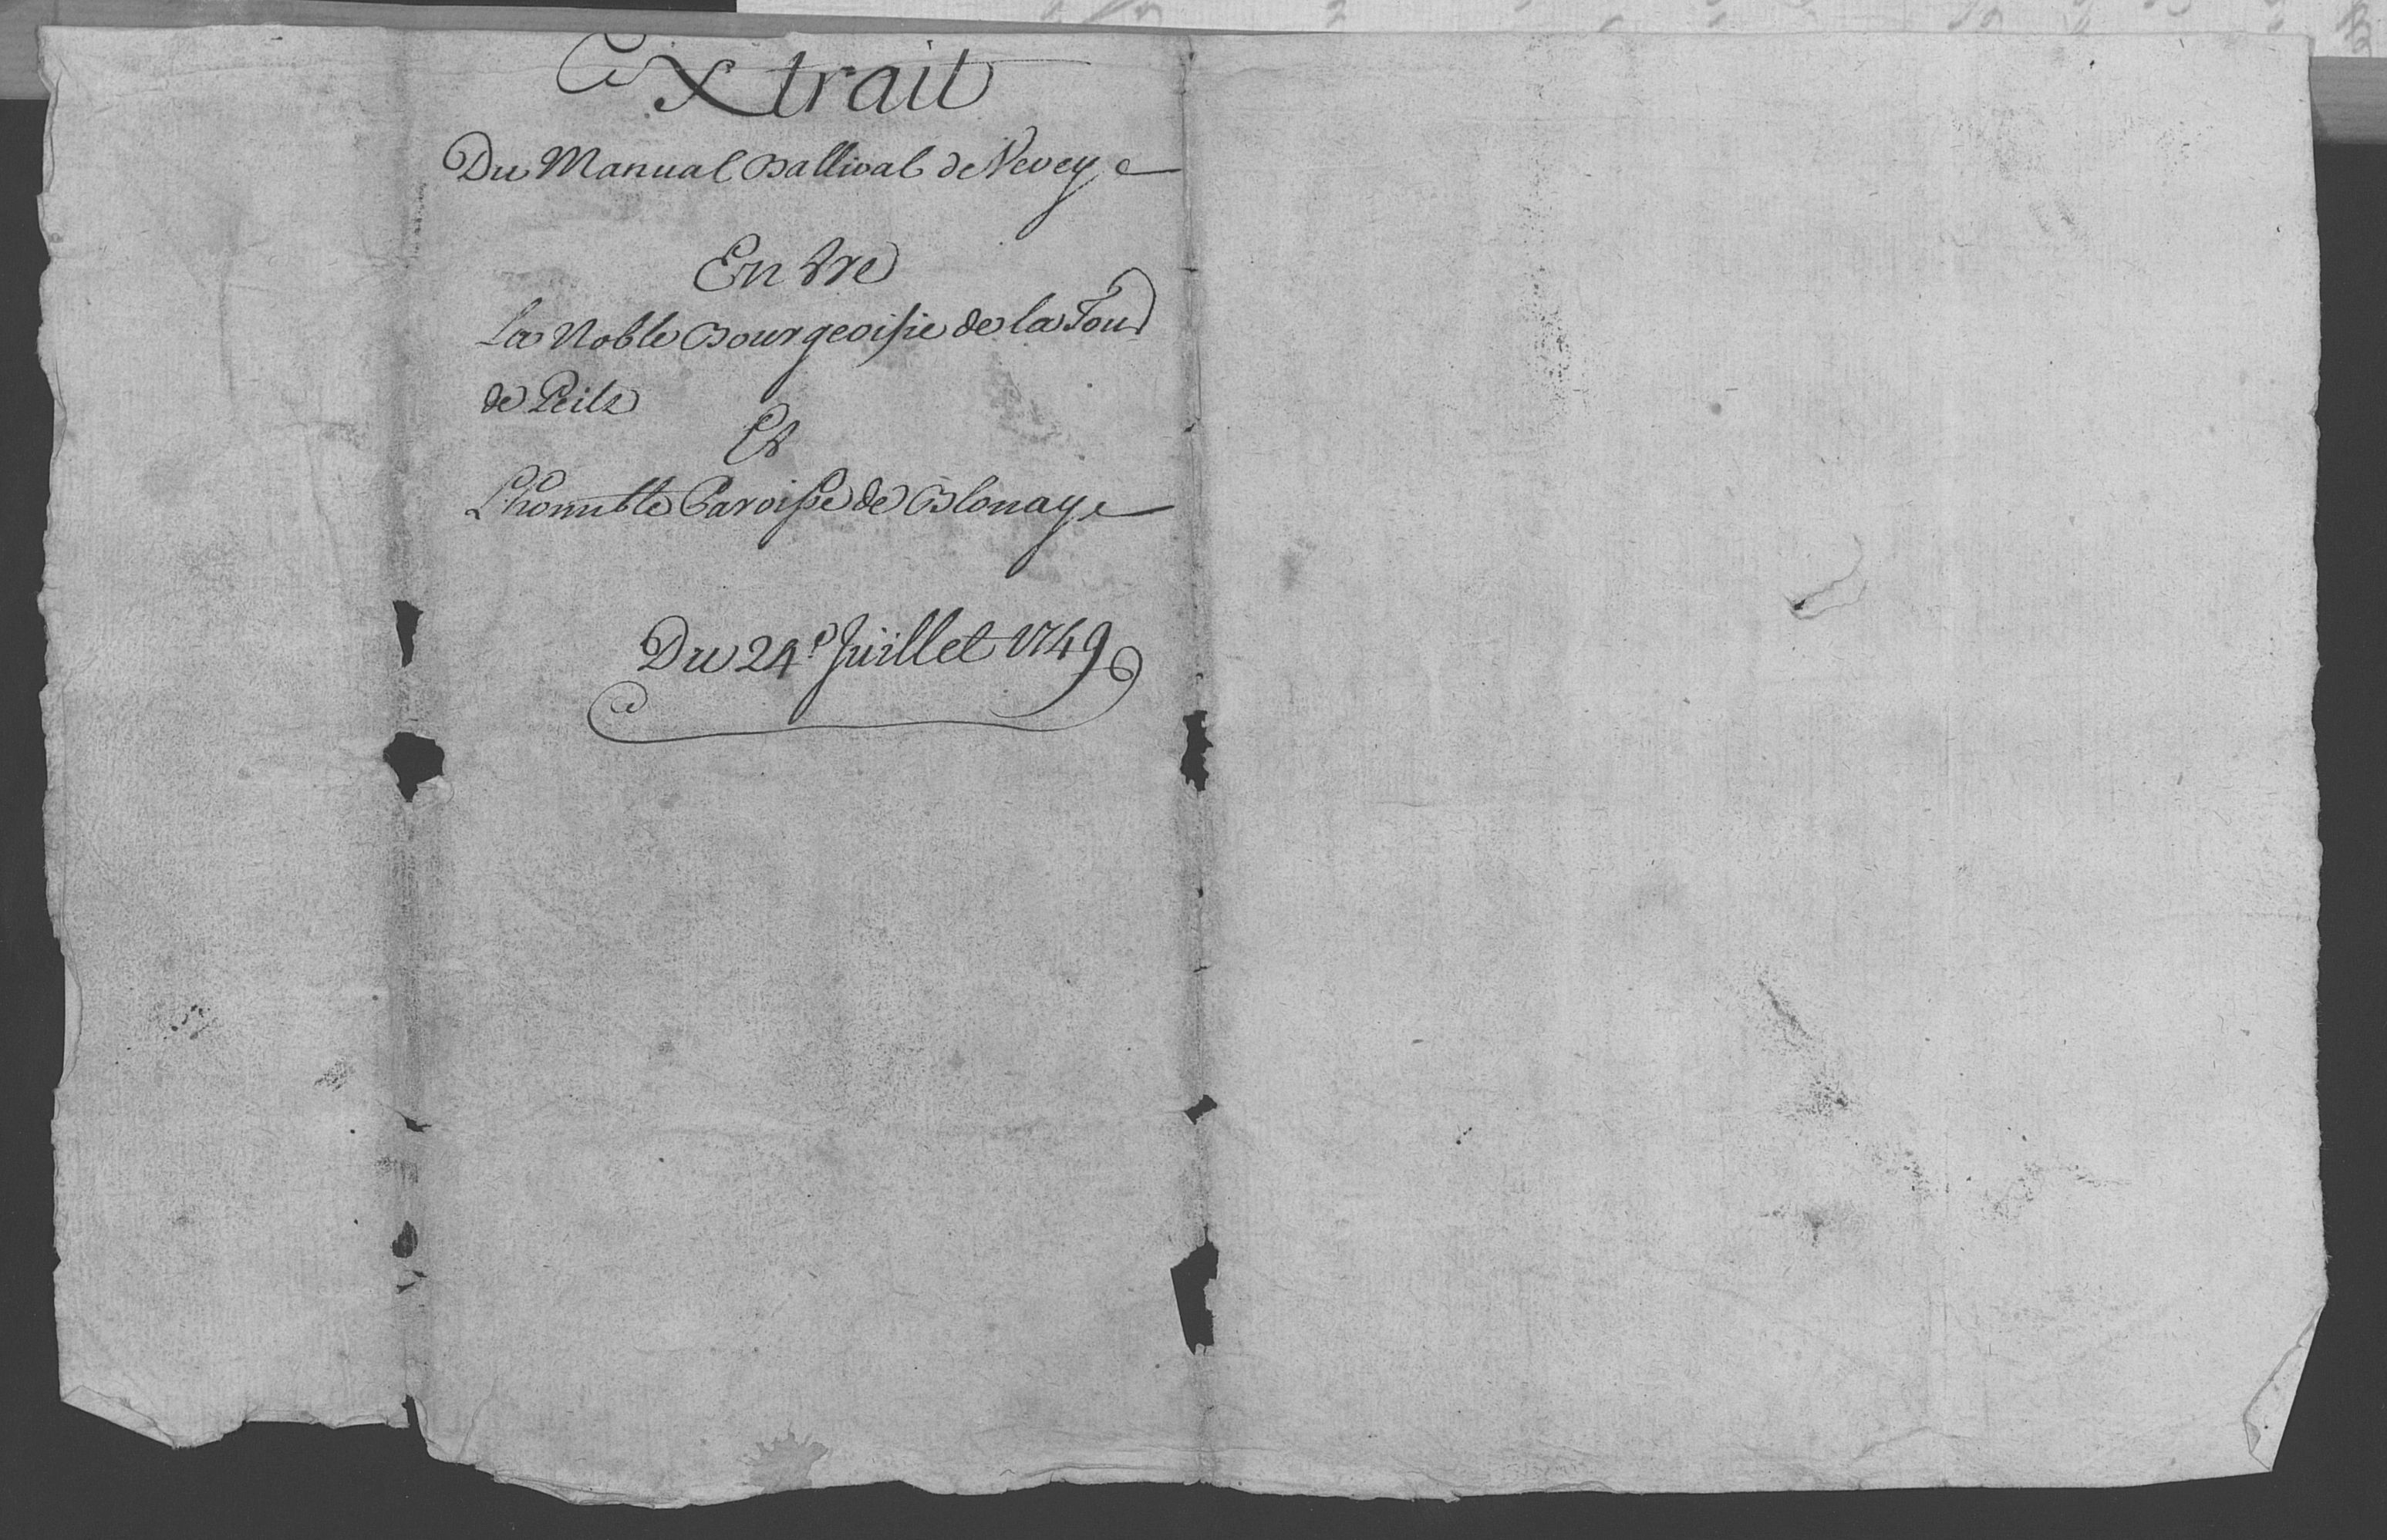 Extrait
Du Manual Ballival de Vevey
Entre
La Noble Bourgeoisie de la Tour
de Peilz
Et
L'honnble Paroisse de Blonay
Du 24e Juillet 1749